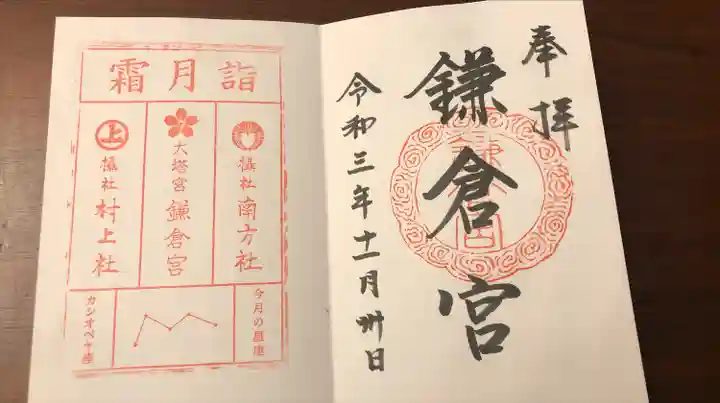 奉拝
鎌倉宮
令和三年十一月卅日
霜月詣
摂社 南方社
大塔宮 鎌倉宮
上
摂社 村上社
今月の星座
カシオペヤ座